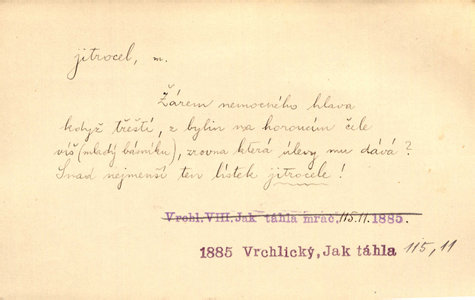 jitrocel, m.
Žárem nemocného hlava
když třeští, z bylin na horoucím čele
víš (mladý básníku), zrovna která úlevy mu dává?
Snad nejmenší ten lístek jitrocele!
Vrchl. VIII, Jak táhla mrač, 115.11. 1885.
1885 Vrchlický, Jak táhla 115, 11